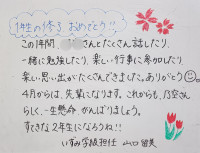 1年生の修了 おめでとう!!
この1年間、 さんとたくさん話したり、
一緒に勉強したり、楽しい行事に参加したり
楽しい思い出がたくさんできました。ありがとう
4月からは、先輩になります。これからも、乃空さん
らしく、一生懸命がんばりましょう。
すてきな2年生になろうね!!
いずみ学級担任 山口留美